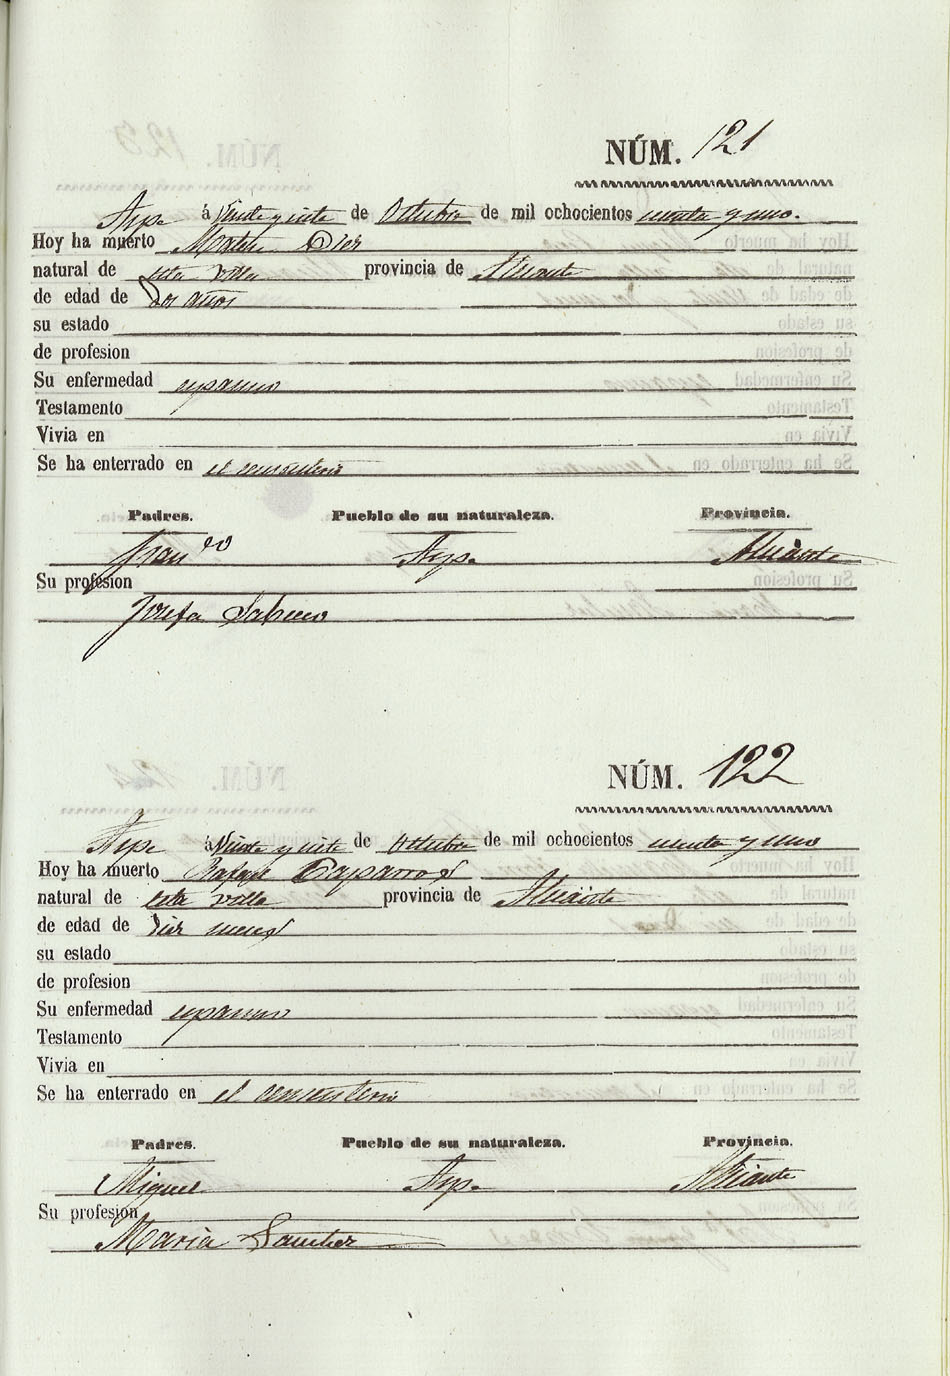 NÚM. 121
Aspe á Veinte y siete de Octubre de mil ochocientos cuarenta y uno.
Hoy ha muerto Diez
natural de esta villa provincia de Alicante
de edad de Dos años
su estado
de profesion
Su enfermedad espasmo
Testamento
Vivia en
Se ha enterrado en el cementerio
Padres. Pueblo de su naturaleza. Provincia.
Franco Aspe Alicante
Su profesion
Josefa
NÚM. 122
Aspe á Veinte y siete de Octubre de mil ochocientos cuarenta y uno
Hoy ha muerto Rafael Caparros
natural de esta villa provincia de Alicante
de edad de diez meses
su estado
de profesion
Su enfermedad espasmo
Testamento
Vivia en
Se ha enterrado en el cementerio
Padres. Pueblo de su naturaleza. Provincia.
Miguel Aspe Alicante
Su profesion
Maria Sanchez